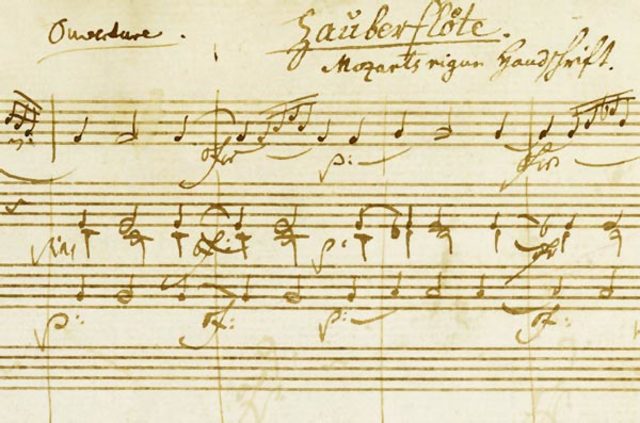 Ouverture.
Zauberflöte.
Mozarts eigne Handschrift.
p:
p:
p:
of:
p:
of: